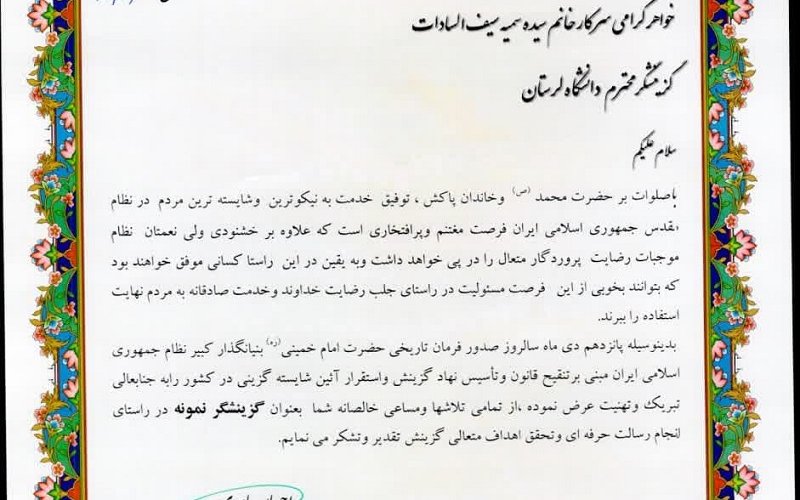 خواهر گرامی سرکار خانم سیده سمیه سیف السادات
گزینشگر محترم دانشگاه لرستان
سلام علیکم
باصلوات بر حضرت محمد (ص) وخاندان پاکش ، توفیق خدمت به نیکوترین وشایسته ترین مردم در نظام
مقدس جمهوری اسلامی ایران فرصت مغتنم وپرافتخاری است که علاوه بر خشنودی ولی نعمتان نظام
موجبات رضایت پروردگار متعال را در پی خواهد داشت وبه یقین در این راستا کسانی موفق خواهند بود
که بتوانند بخوبی از این فرصت مسئولیت در راستای جلب رضایت خداوند وخدمت صادقانه به مردم نهایت
استفاده را ببرند.
بدینوسیله پانزدهم دی ماه سالروز صدور فرمان تاریخی حضرت امام خمینی(ره) بنیانگذار کبیر نظام جمهوری
اسلامی ایران مبنی برتنقیح قانون وتأسیس نهاد گزینش واستقرار آئین شایسته گزینی در کشور رابه جنابعالی
تبریک وتهنیت عرض نموده ،از تمامی تلاشها ومساعی خالصانه شما بعنوان گزینشگر نمونه در راستای
انجام رسالت حرفه ای وتحقق اهداف متعالی گزینش تقدیر وتشکر می نمایم.